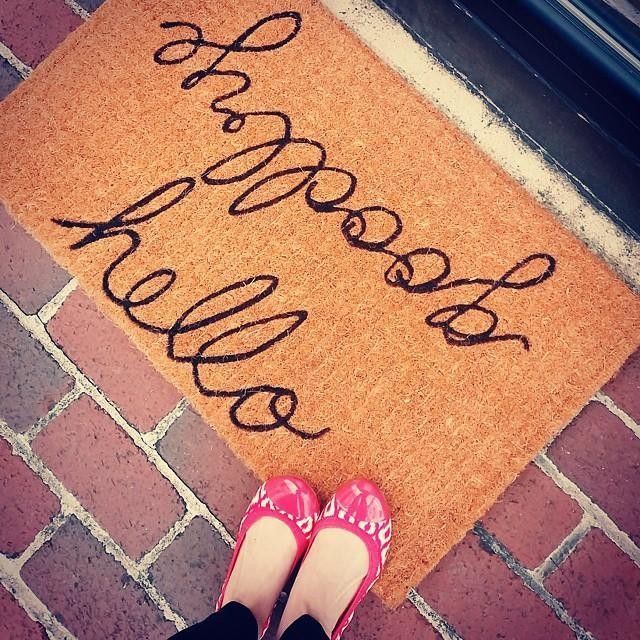 hello
goodbye